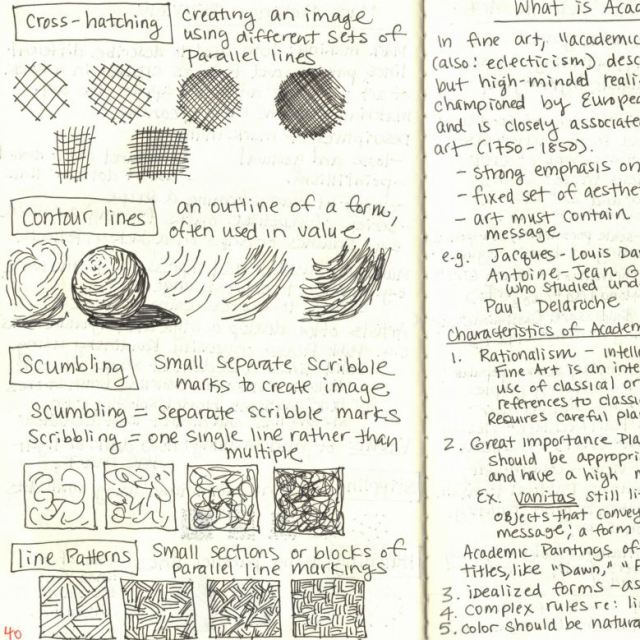 Cross-hatching
creating an image
using different sets of
Parallel lines
Contour lines
an outline of a form,
often used in value
Scumbling
Small separate scribble
marks to create image
Scumbling = separate scribble marks
Scribbling = one single line rather than
multiple
line Patterns
Small sections or blocks of
parallel line markings
40
What is Acad
In fine art, "academic
(also: eclecticism) desc
but high-minded reali
championed by Europea
and is closely associate
art (1750-1850).
- strong emphasis on
- fixed set of aesthe
- art must contain
message
e.g. Jacques-Louis Da
Antoine-Jean G
who studied und
Paul Delaroche
Characteristics of Academ
1. Rationalism - intelle
Fine Art is an inte
use of classical or
references to classi
Requires careful pla
2. Great importance Pla
should be appropri
and have a high m
Ex. Vanitas still li
objects that convey
message; a form
Academic Paintings of
titles, like "Dawn," "F
3. idealized forms - as
4. complex rules re: li
5. color should be natura